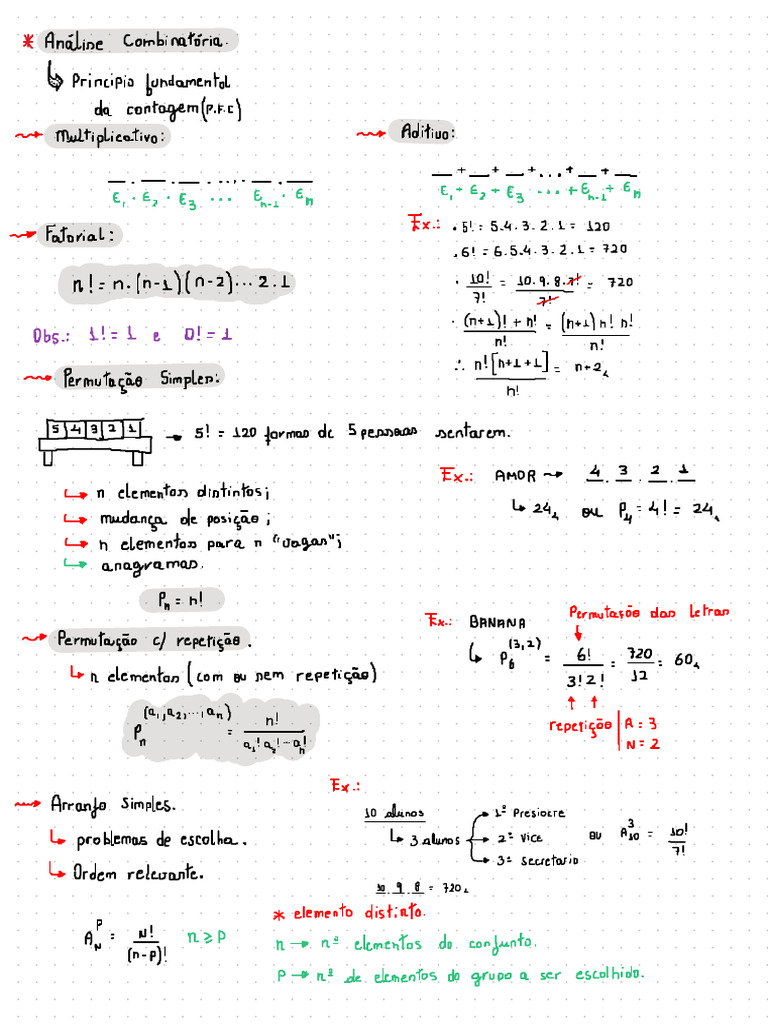 * Análise Combinatória.
↳ Principio fundamental
da contagem (P.F.C)
Multiplicativo:
__ . __ . __ . ... . __ . __
E₁ . E₂ . E₃ ... Eₙ₋₁ . Eₙ
Aditivo:
__ + __ + __ + ... + __ + __
E₁ + E₂ + E₃ ... + Eₙ₋₁ + Eₙ
Fatorial:
n! = n.(n-1)(n-2)... 2.1
Obs.: 1! = 1 e 0! = 1
Ex.: . 5! = 5.4.3.2.1 = 120
. 6! = 6.5.4.3.2.1 = 720
. 10!/7! = 10.9.8.7!/7! = 720
. (n+1)! + n!/n! = (n+1) n! n!/n!
∴ n! [n+1+1]/n! = n+2
Permutação Simples:
5 4 3 2 1 → 5! = 120 formas de 5 pessoas sentarem.
↳ n elementos distintos;
↳ mudança de posição;
↳ n elementos para n "vagas";
↳ anagramas.
Pₙ = n!
Ex.: AMOR → 4 . 3 . 2 . 1
↳ 24 ou P₄ = 4! = 24
Permutação c/ repetição.
↳ n elementos (com ou sem repetição)
Pₙ^(a₁,a₂,...,aₙ) = n!/a₁! a₂! ... aₙ!
Permutação das Letras
Ex.: BANANA
↳ P₆^(3,2) = 6!/3!2! = 720/12 = 60
repetição | A = 3
N = 2
Arranjo Simples.
↳ problemas de escolha.
↳ Ordem relevante.
A_N^P = N!/(n-p)! n ≥ P
Ex.:
10 alunos
↳ 3 alunos
1º Presidente
2º Vice
3º Secretario
ou A₁₀³ = 10!/7!
10 . 9 . 8 = 720
* elemento distinto.
n → nº elementos do conjunto.
P → nº de elementos do grupo a ser escolhido.